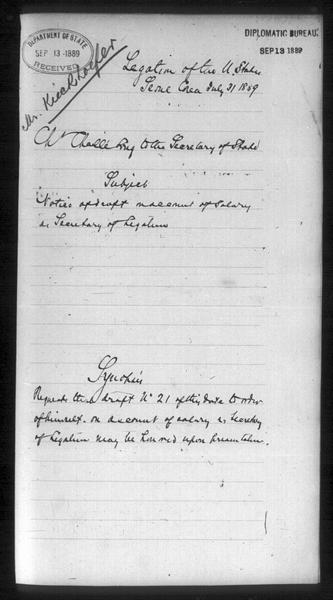 DEPARTMENT OF STATE
SEP 13 1889
RECEIVED
DIPLOMATIC BUREAU.
SEP 13 1889
Mr. Kieckhoefer
Legation of the U. States
Seoul Corea July 31 1889
Chs Chaillé Long to the Secretary of State
Subject
Notice of draft on account of Salary
as Secretary of Legation
Synopsis
Requests that draft No 21 of this date to order
of himself on account of salary as Secretary
of Legation may be honored upon presentation.